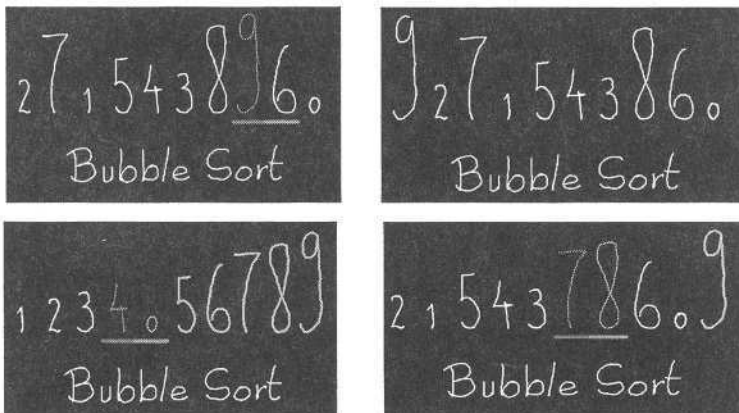 2 7 1 5 4 3 8 9 6 0
Bubble Sort
9 2 7 1 5 4 3 8 6 0
Bubble Sort
1 2 3 4 0 5 6 7 8 9
Bubble Sort
2 1 5 4 3 7 8 6 0 9
Bubble Sort